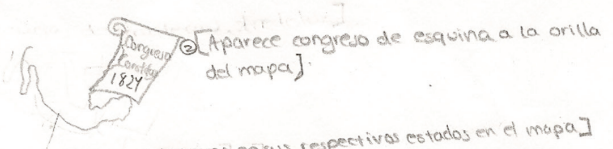 Congreso
1824
② [Aparece congreso de esquina a la orilla
del mapa].
respectivos estados en el mapa]